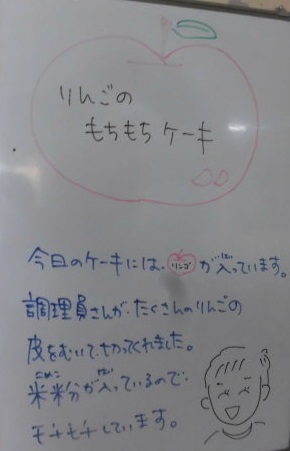 りんごの
もちもちケーキ
今日のケーキには、リンゴが入っています。
調理員さんが、たくさんのりんごの
皮をむいて、切ってくれました。
米粉が入っているので、
モチモチしています。